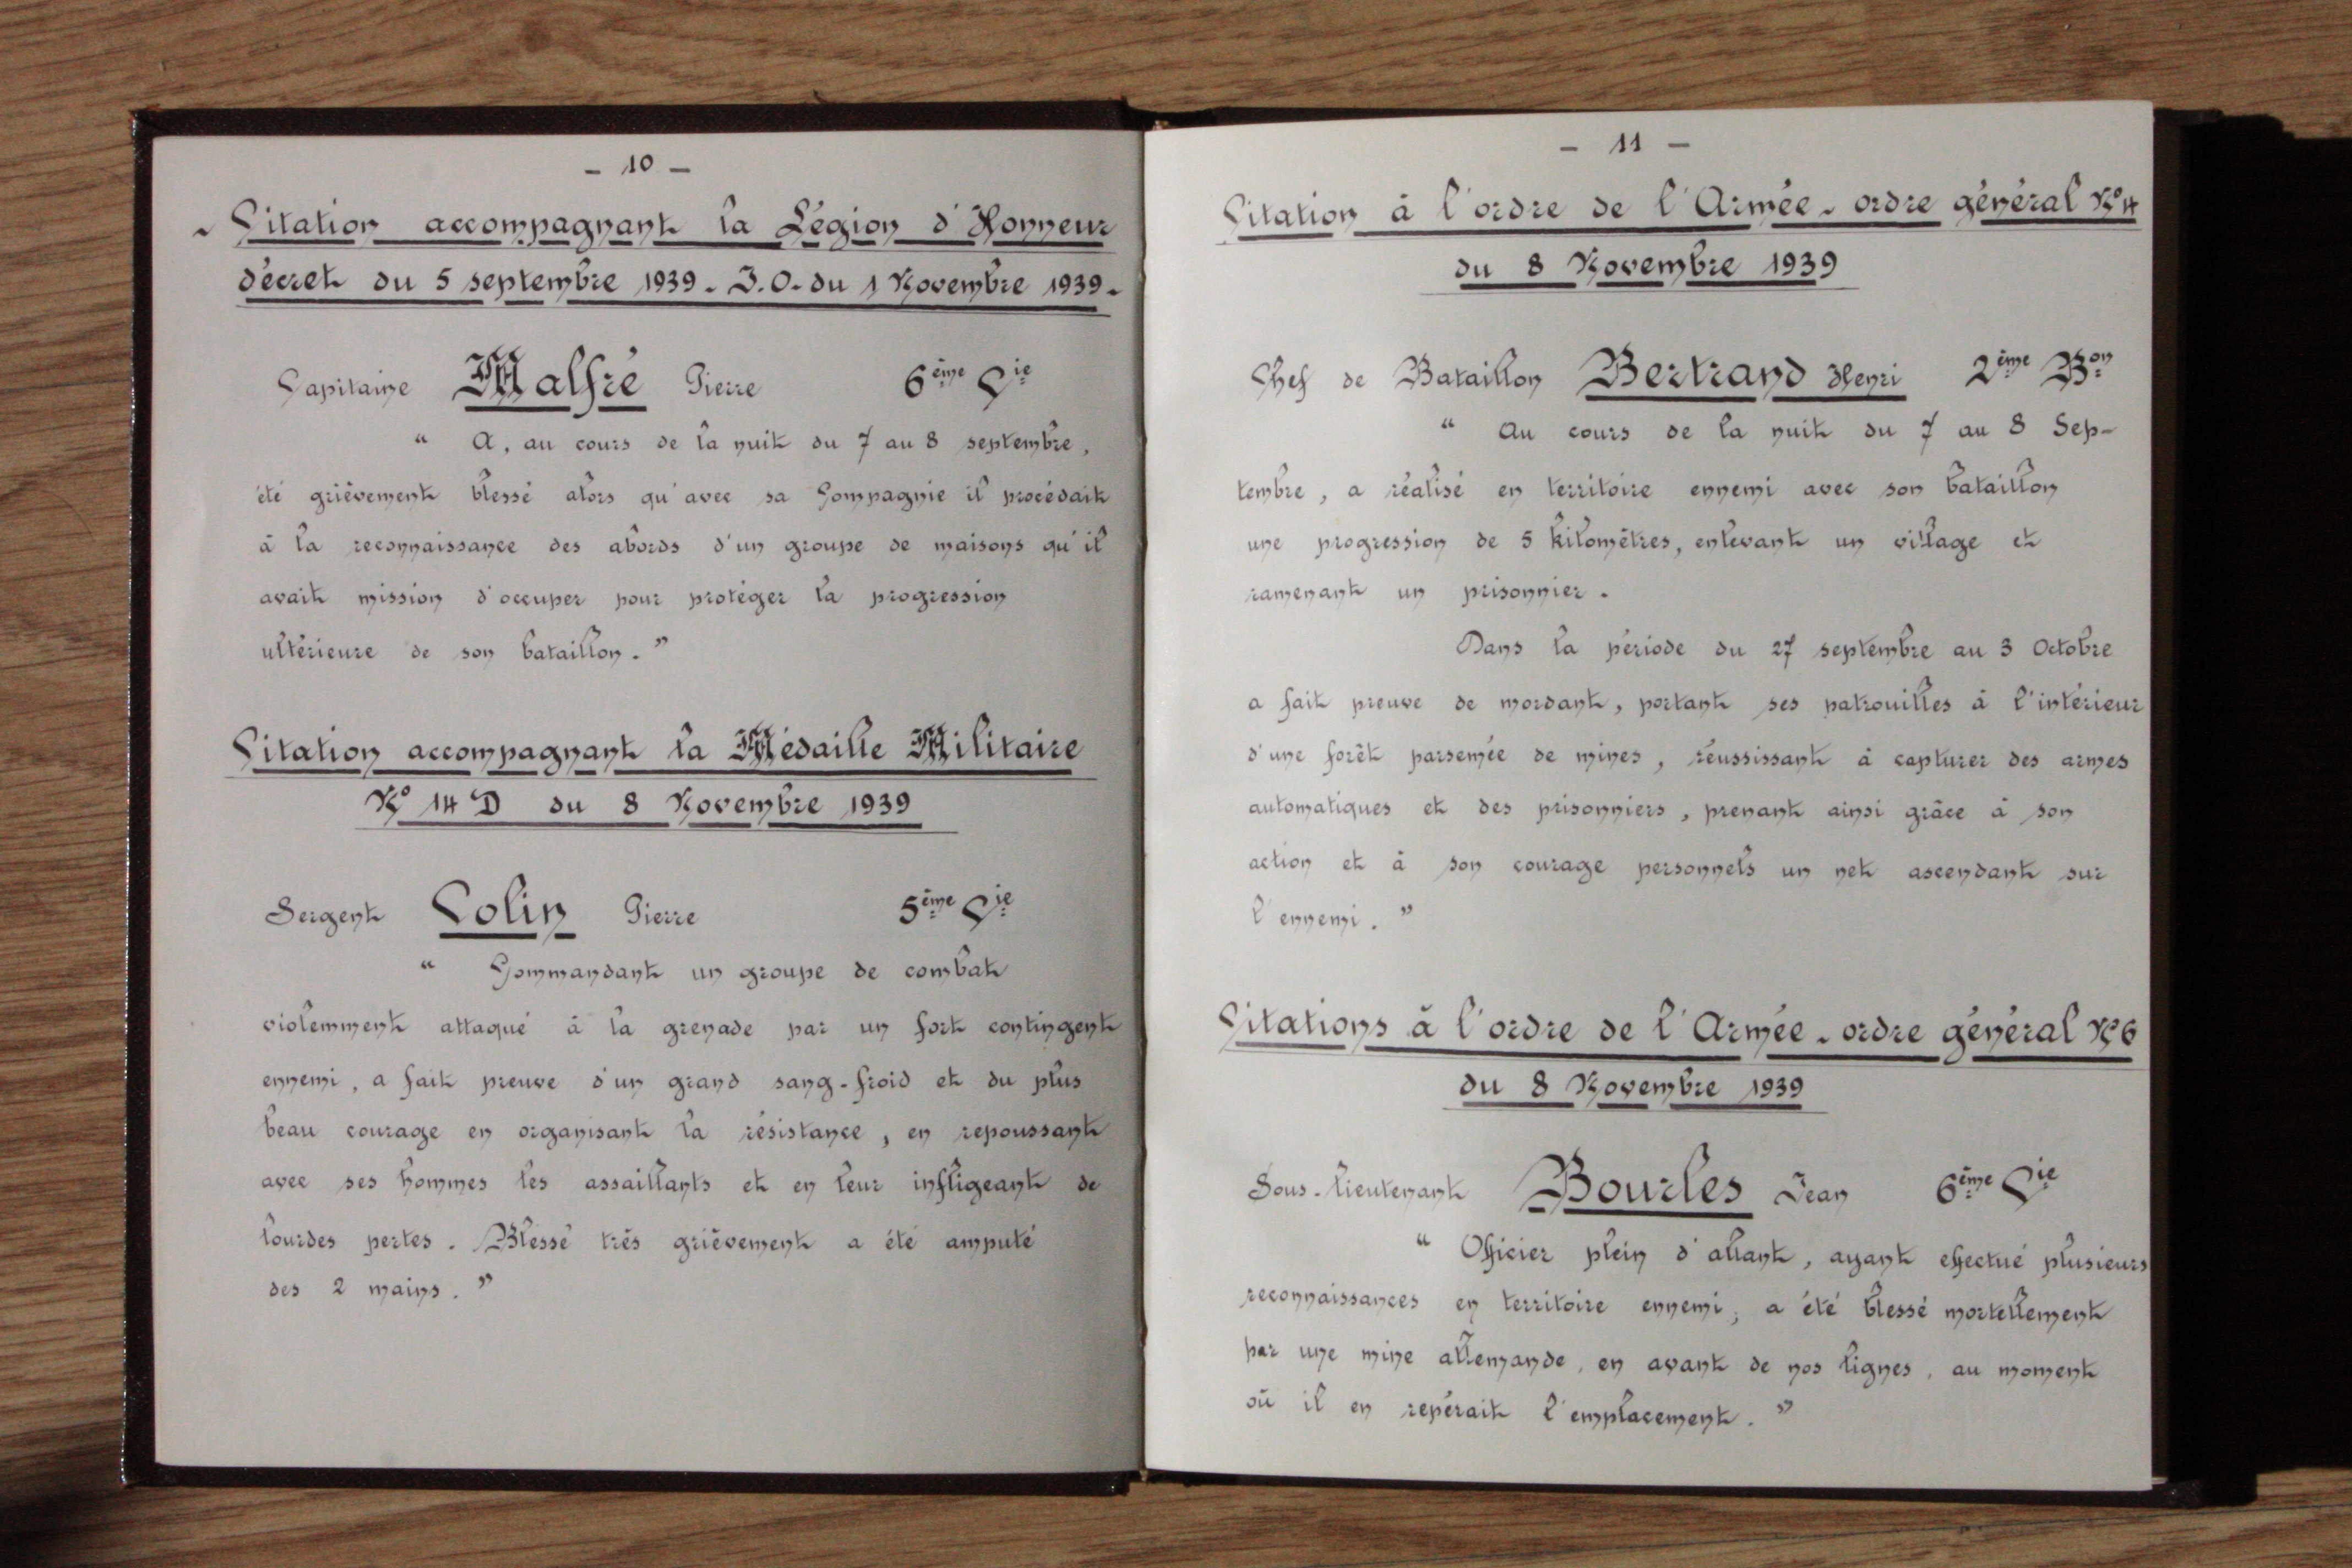 - 10 -
- Citation accompagnant la Légion d'Honneur
décret du 5 septembre 1939. J.O. du 1 Novembre 1939.
Capitaine Malfré Pierre 6ème Cie
" A, au cours de la nuit du 7 au 8 septembre,
été grièvement blessé alors qu'avec sa Compagnie il procédait
à la reconnaissance des abords d'un groupe de maisons qu'il
avait mission d'occuper pour protéger la progression
ultérieure de son bataillon. "
Citation accompagnant la Médaille Militaire
No 14 D du 8 Novembre 1939
Sergent Colin Pierre 5ème Cie
" Commandant un groupe de combat
violemment attaqué à la grenade par un fort contingent
ennemi, a fait preuve d'un grand sang-froid et du plus
beau courage en organisant la résistance, en repoussant
avec ses hommes les assaillants et en leur infligeant de
lourdes pertes. Blessé très grièvement a été amputé
des 2 mains. "
- 11 -
Citation à l'ordre de l'Armée - ordre général No 4
du 8 Novembre 1939
Chef de Bataillon Bertrand Henri 2ème Bon
" Au cours de la nuit du 7 au 8 Sep-
tembre, a réalisé en territoire ennemi avec son bataillon
une progression de 5 kilomètres, enlevant un village et
ramenant un prisonnier.
Dans la période du 27 septembre au 3 Octobre
a fait preuve de mordant, portant ses patrouilles à l'intérieur
d'une forêt parsemée de mines, réussissant à capturer des armes
automatiques et des prisonniers, prenant ainsi grâce à son
action et à son courage personnels un net ascendant sur
l'ennemi. "
Citations à l'ordre de l'Armée - ordre général No 6
du 8 Novembre 1939
Sous-lieutenant Bourles Jean 6ème Cie
" Officier plein d'allant, ayant effectué plusieurs
reconnaissances en territoire ennemi, a été blessé mortellement
par une mine allemande, en avant de nos lignes, au moment
où il en repérait l'emplacement. "